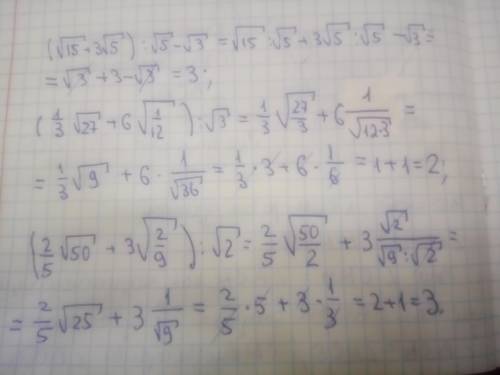 (√15+3√5):√5-√3 = √15:√5+3√5:√5-√3=
=√3+3-√3 = 3;
(1/3 √27 + 6√(1/12)):√3 = 1/3 √(27/3) + 6 1/√(12·3) =
= 1/3 √9 + 6 · 1/√36 = 1/3 · 3 + 6 · 1/6 = 1+1=2;
(2/5 √50 + 3√(2/9)):√2 = 2/5 √(50/2) + 3 √2/(√9:√2) =
= 2/5 √25 + 3 1/√9 = 2/5 · 5 + 3 · 1/3 = 2+1=3.